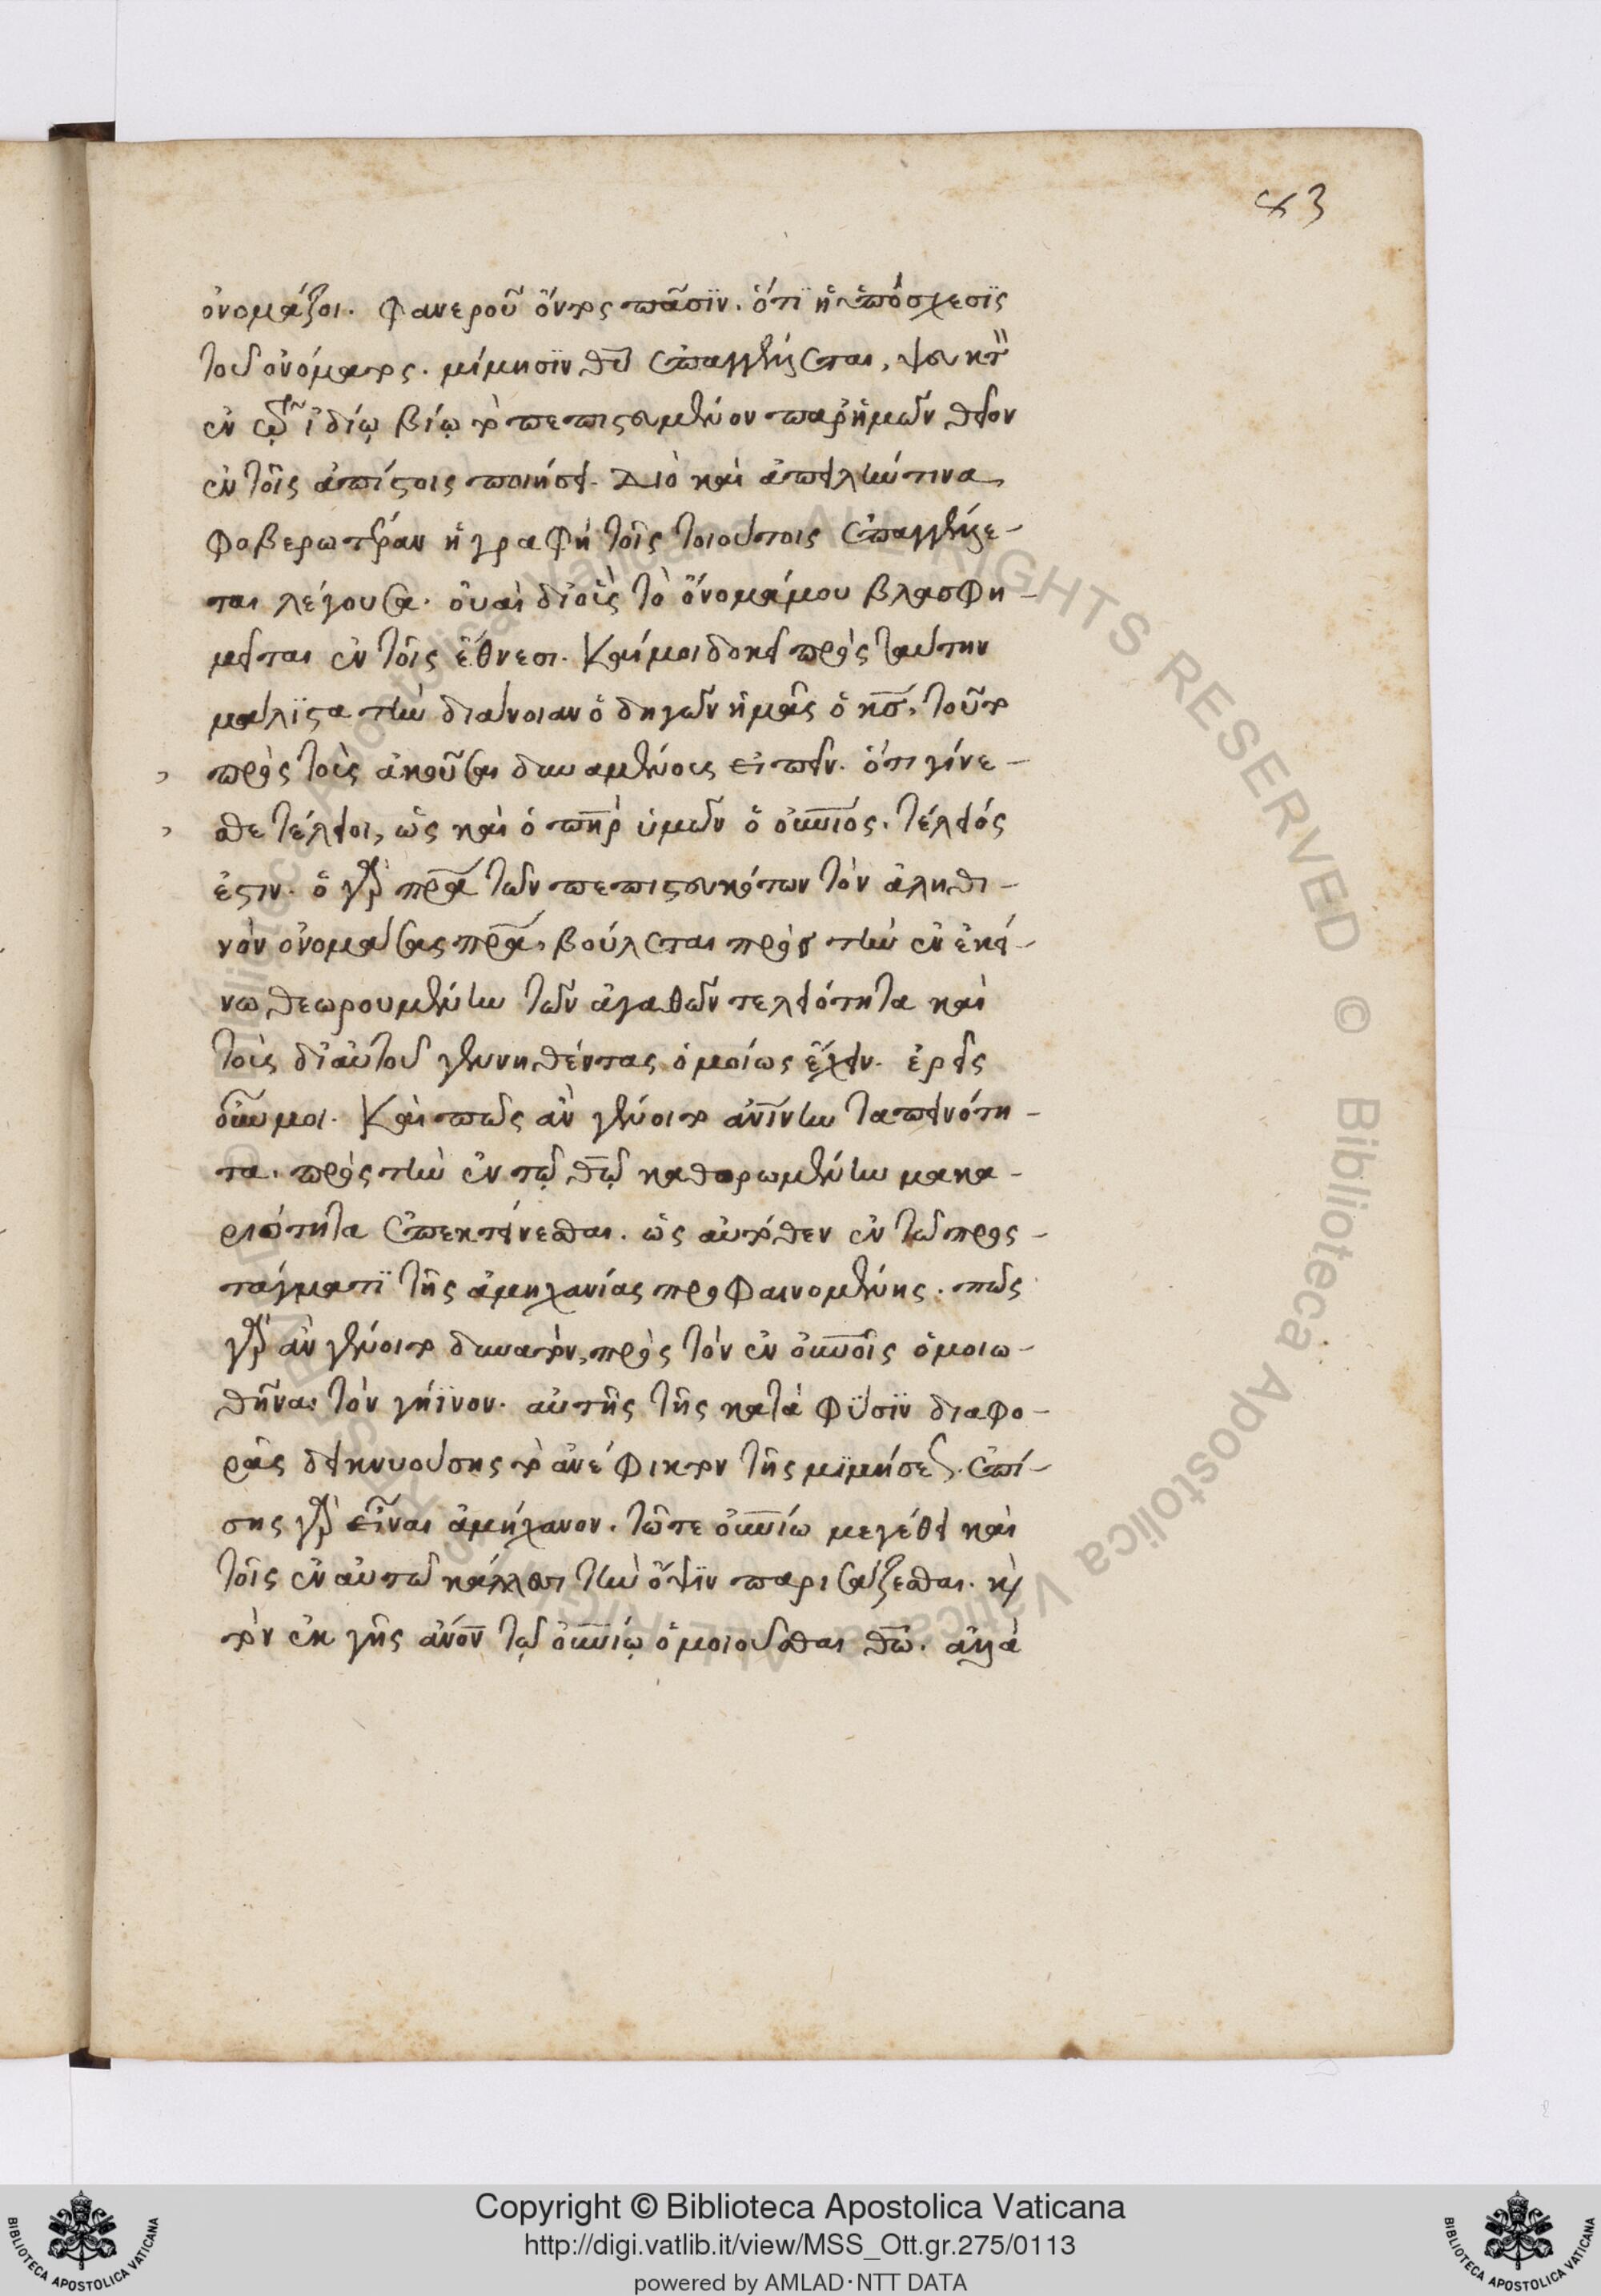 83
ὀνομάζοι. φανεροῦ ὄντος πᾶσϊν. ὅτϊ ἡ ὑπόσχεσϊς
τοῦ ὀνόματος. μίμησϊν θῡ ἐπαγγέλλεται,
ἐν τῷ ἰδίῳ βίῳ τὸ πεπιστευμένον παρ' ἡμῶν θεῖον
ἐν τοῖς ἀπίστοις ποιήσει. Διὸ καὶ ἀπειλήν τινα
φοβερωτέραν ἡ γραφὴ τοῖς τοιούτοις ἐπαγγέλλε-
ται λέγουσα. οὐαὶ δι' οὓς τὸ ὄνομά μου βλασφη-
μεῖται ἐν τοῖς ἔθνεσι. Καί μοι δοκεῖ πρὸς ταύτην
μάλϊστα τὴν διάνοιαν ὁδηγῶν ἡμᾶς ὁ κς̄. τοῦτο
πρὸς τοὺς ἀκοῦσαι δυναμένους εἰπεῖν. ὅτι γίνε-
σθε τέλειοι, ὡς καὶ ὁ πηρ̄ ὑμῶν ὁ οὐνιος. τέλειός
ἐστιν. ὁ γὰρ πρ̄α τῶν πεπιστευκότων τὸν ἀληθι-
νὸν ὀνομάσας πρ̄α, βούλεται πρὸς τὴν ἐν ἐκεί-
νω θεωρουμένην τῶν ἀγαθῶν τελειότητα καὶ
τοὺς δι' αὐτοῦ γεννηθέντας ὁμοίως ἔχειν. ἐρεῖς
οὖν μοι. Καὶ πῶς ἂν γένοιτο ἀνίνην ταπεινότη-
τα. πρὸς τὴν ἐν τῷ θῷ καθορωμένην μακα-
ριότητα ἐπεκτείνεσθαι. ὡς αὐτόθεν ἐν τῶ προς-
τάγματϊ τῆς ἀμηχανίας προφαινομένης. πῶς
γὰρ ἂν γένοιτο δυνατὸν, πρὸς τὸν ἐν οὐνοῖς ὁμοιω-
θῆναι τὸν γήϊνον. αὐτῆς τῆς κατὰ φύσϊν διαφο-
ρᾶς δεικνυούσης τὸ ἀνέφικτον τῆς μϊμήσεως. ἐπί-
σης γὰρ εἶναι ἀμήχανον. τῶ τε οὐνίω μεγέθει καὶ
τοῖς ἐν αὐτῶ κάλλεσι τὴν ὄψϊν παρισάζεσθαι. καὶ
τὸν ἐκ γῆς ἄνον τῷ οὐνίῳ ὁμοιοῦσθαι θῶ. ἀλλὰ
Copyright © Biblioteca Apostolica Vaticana
http://digi.vatlib.it/view/MSS_Ott.gr.275/0113
powered by AMLAD·NTT DATA